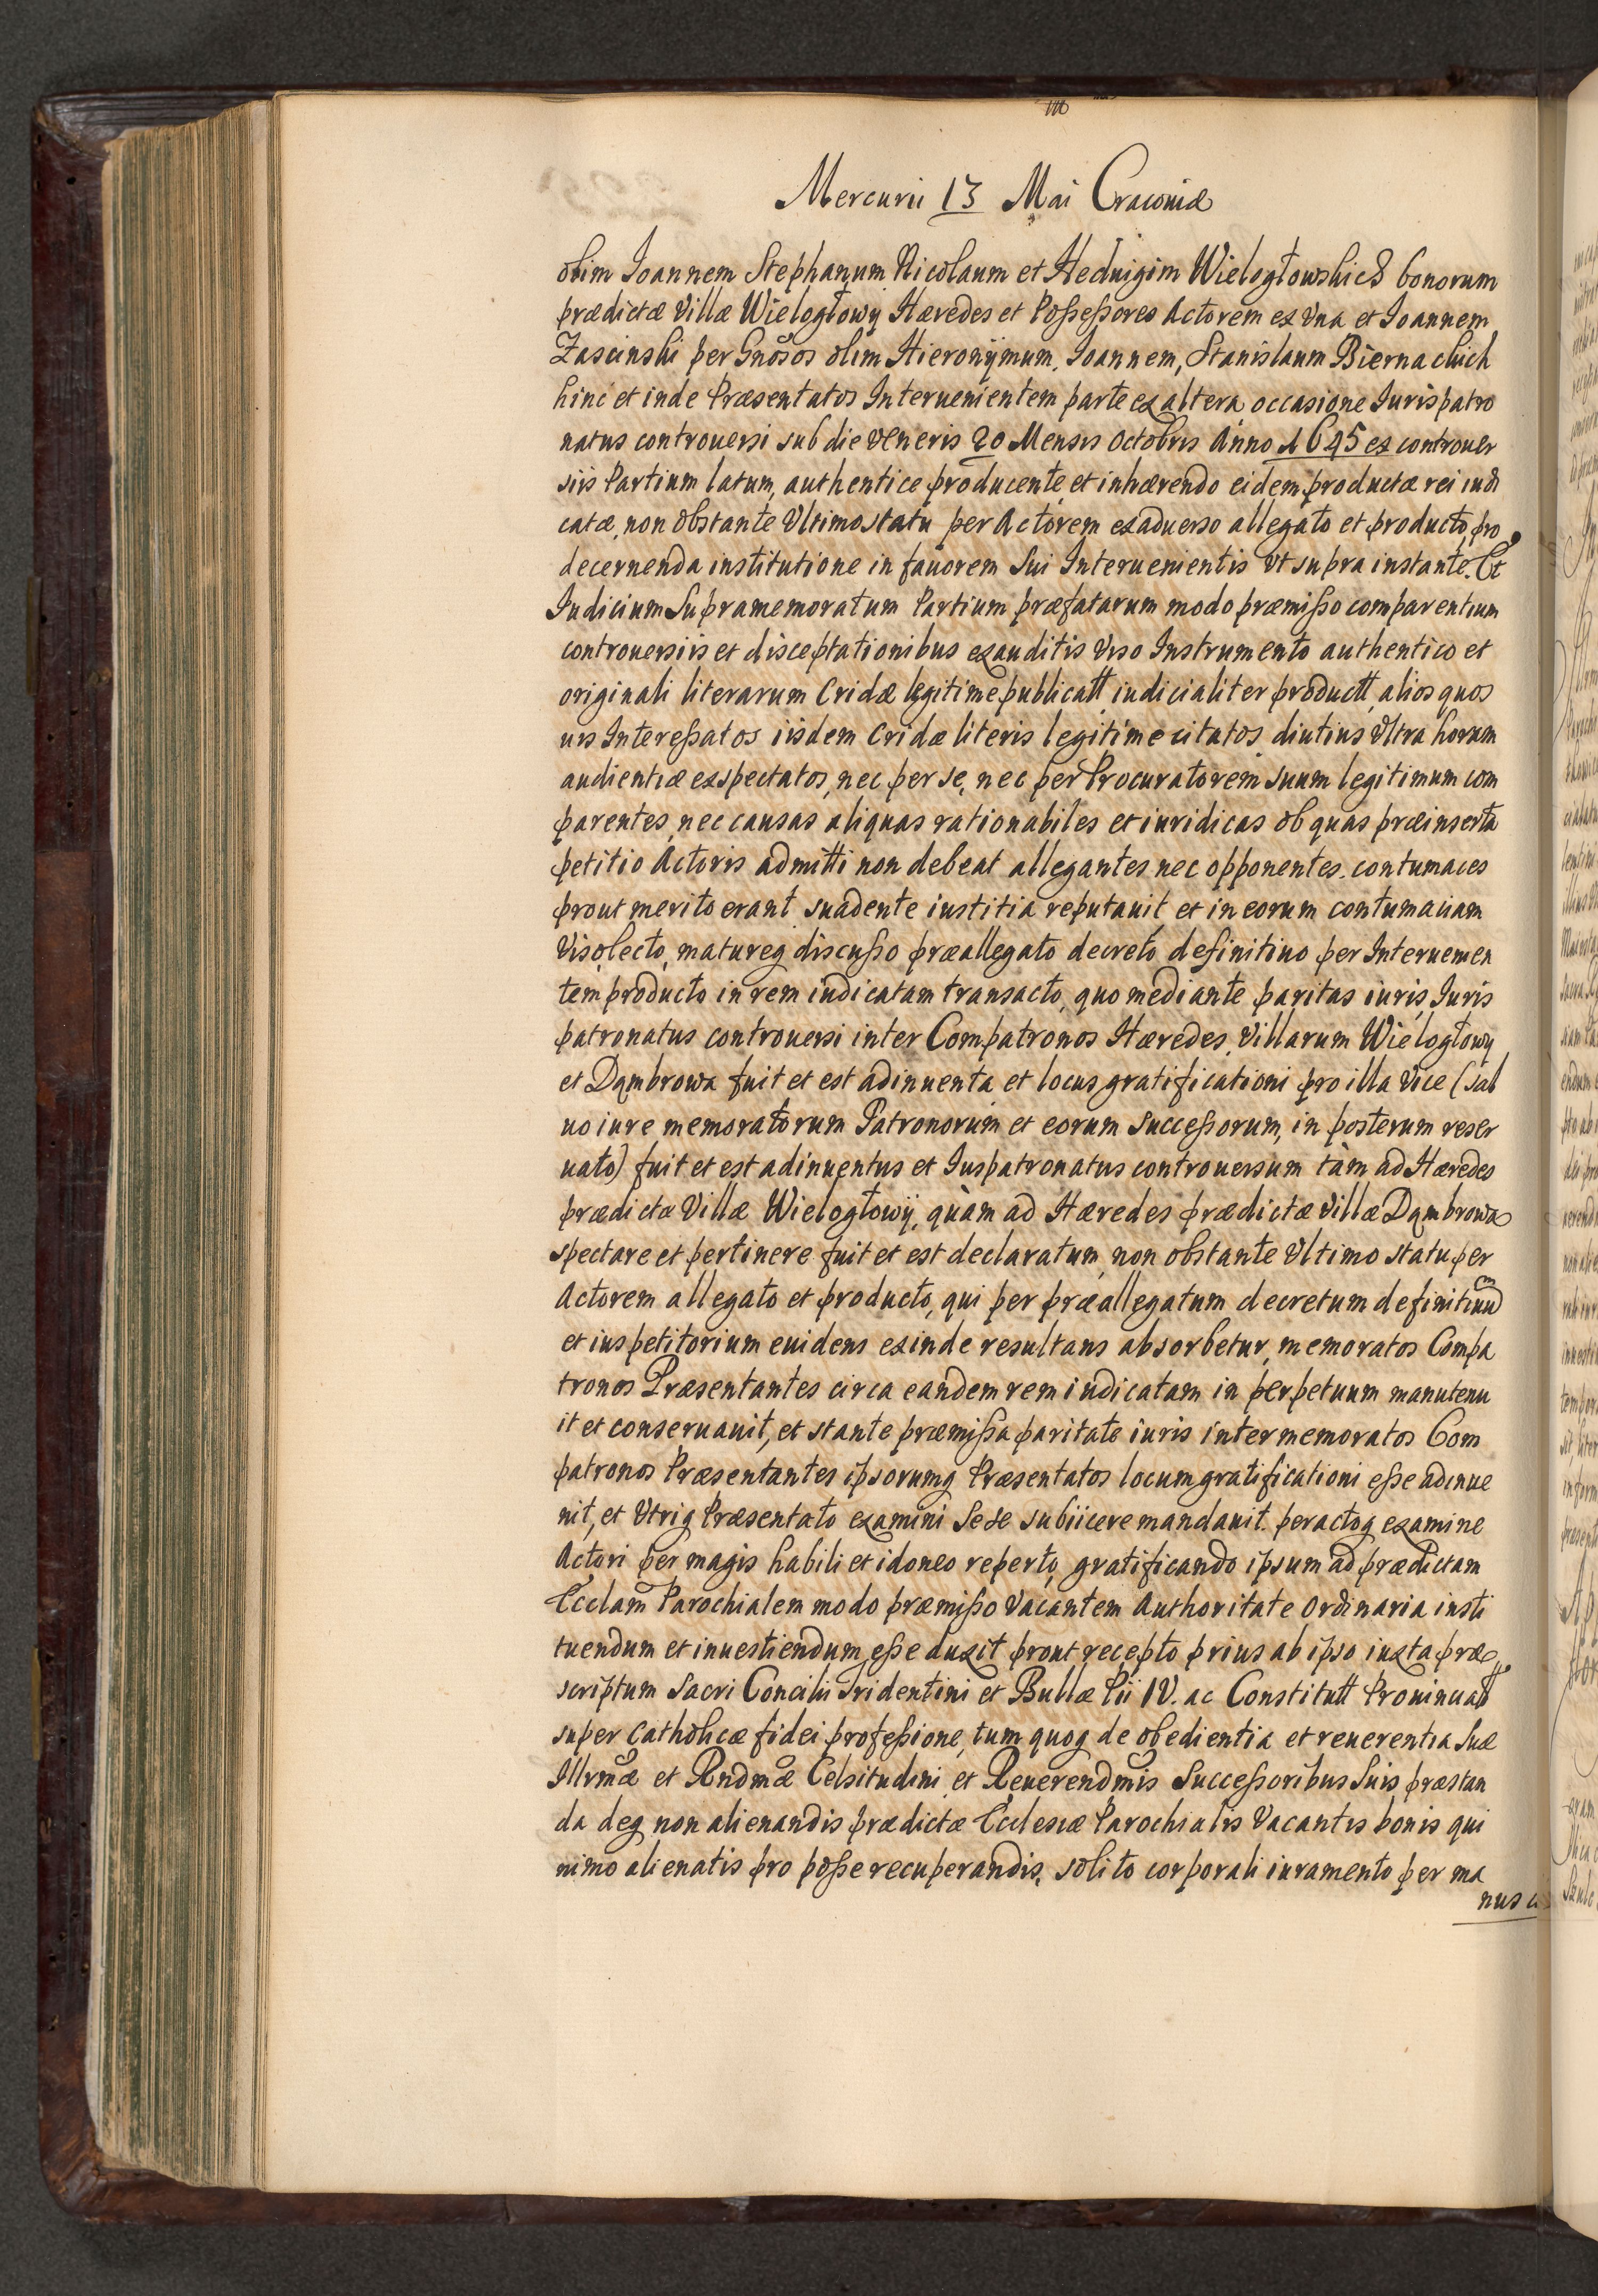 Mercurii 13 Mai Cracoviæ
olim Ioannem Stephanum Nicolaum et Heduigim Wielogłowskies bonorum
prædictæ Villæ Wielogłowy Hæredes et Possessores Actorem ex Vna et Ioannem
Zascinski per Gnõsos olim Hieronÿmum, Ioannem, Stanislaum Biernackich
hinc et inde Præsentatos Interuenientem parte ex altera occasione Iurispatro
natus controuersi sub die Veneris 20 Mensis Octobris Anno 1645 ex controuer
siis Partium latum, authentice producente et inhærendo eidem productæ rei iudi
catæ, non obstante Vltimo statu per Actorem ex aduerso allegato et producto, pro
decernenda institutione in fauorem Sui Interuenientis Vt supra instante. Et
Iudicium Supramemoratum Partium præfatarum modo præmisso comparentium
controuersiis et disceptationibus exauditis Viso Instrumento authentico et
originali literarum Cridæ legitime publicatt iudicialiter productt, alios quos
uis Interessatos iisdem Cridæ literis legitime citatos diutius Vltra horam
audientiæ exspectatos, nec per se, nec per Procuratorem suum legitimum com
parentes, nec causas aliquas rationabiles et iuridicas ob quas præinserta
petitio Actoris admitti non debeat allegantes nec opponentes. contumaces
prout merito erant suadente iustitia reputauit et in eorum contumaciam
Viso, lecto, matureq discusso præallegato decreto definitiuo per Interuenien
tem producto in rem iudicatam transacto, quo mediante paritas iuris Iuris
patronatus controuersi inter Compatronos Hæredes Villarum Wielogłowy
et Dąmbrowa fuit et est adinuenta et locus gratificationi pro illa Vice (sal
uo iure memoratorum Patronorum et eorum Successorum, in posterum reser
uato) fuit et est adinuentus et Iuspatronatus controuersum tam ad Hæredes
prædictæ Villæ Wielogłowÿ, quàm ad Hæredes prædictæ Villæ Dąmbrowa
spectare et pertinere fuit et est declaratum, non obstante Vltimo statu per
Actorem allegato et producto, qui per præallegatum decretum definitiuum
et ius petitorium euidens exinde resultans absorbetur, memoratos Compa
tronos Præsentantes circa eandem rem iudicatam in perpetuum manutenu
it et conseruauit, et stante præmissa paritate iuris inter memoratos Com
patronos Præsentantes ipsorumq Præsentatos locum gratificationi esse adinue
nit, et Vtriq Præsentato examini Sese subiicere mandauit. peractoq examine
Actori per magis habili et idoneo reperto, gratificando ipsum ad prædictam
Ecclam Parochialem modo præmisso Vacantem Authoritate Ordinaria insti
tuendum et inuestiendum esse duxit prout recepto prius ab ipso iuxta præ
scriptum Sacri Concilii Tridentini et Bullæ Pii IV. ac Constitutt Prouincialt
super Catholicæ fidei professione, tum quoq de obedientia et reuerentia Suæ
Illrmæ et Rndmæ Celsitudini et Reuerendmis Successoribus Suis præstan
da deq non alienandis prædictæ Ecclesiæ Parochialis Vacantis bonis qui
nimo alienatis pro posse recuperandis, solito corporali iuramento per ma
nus